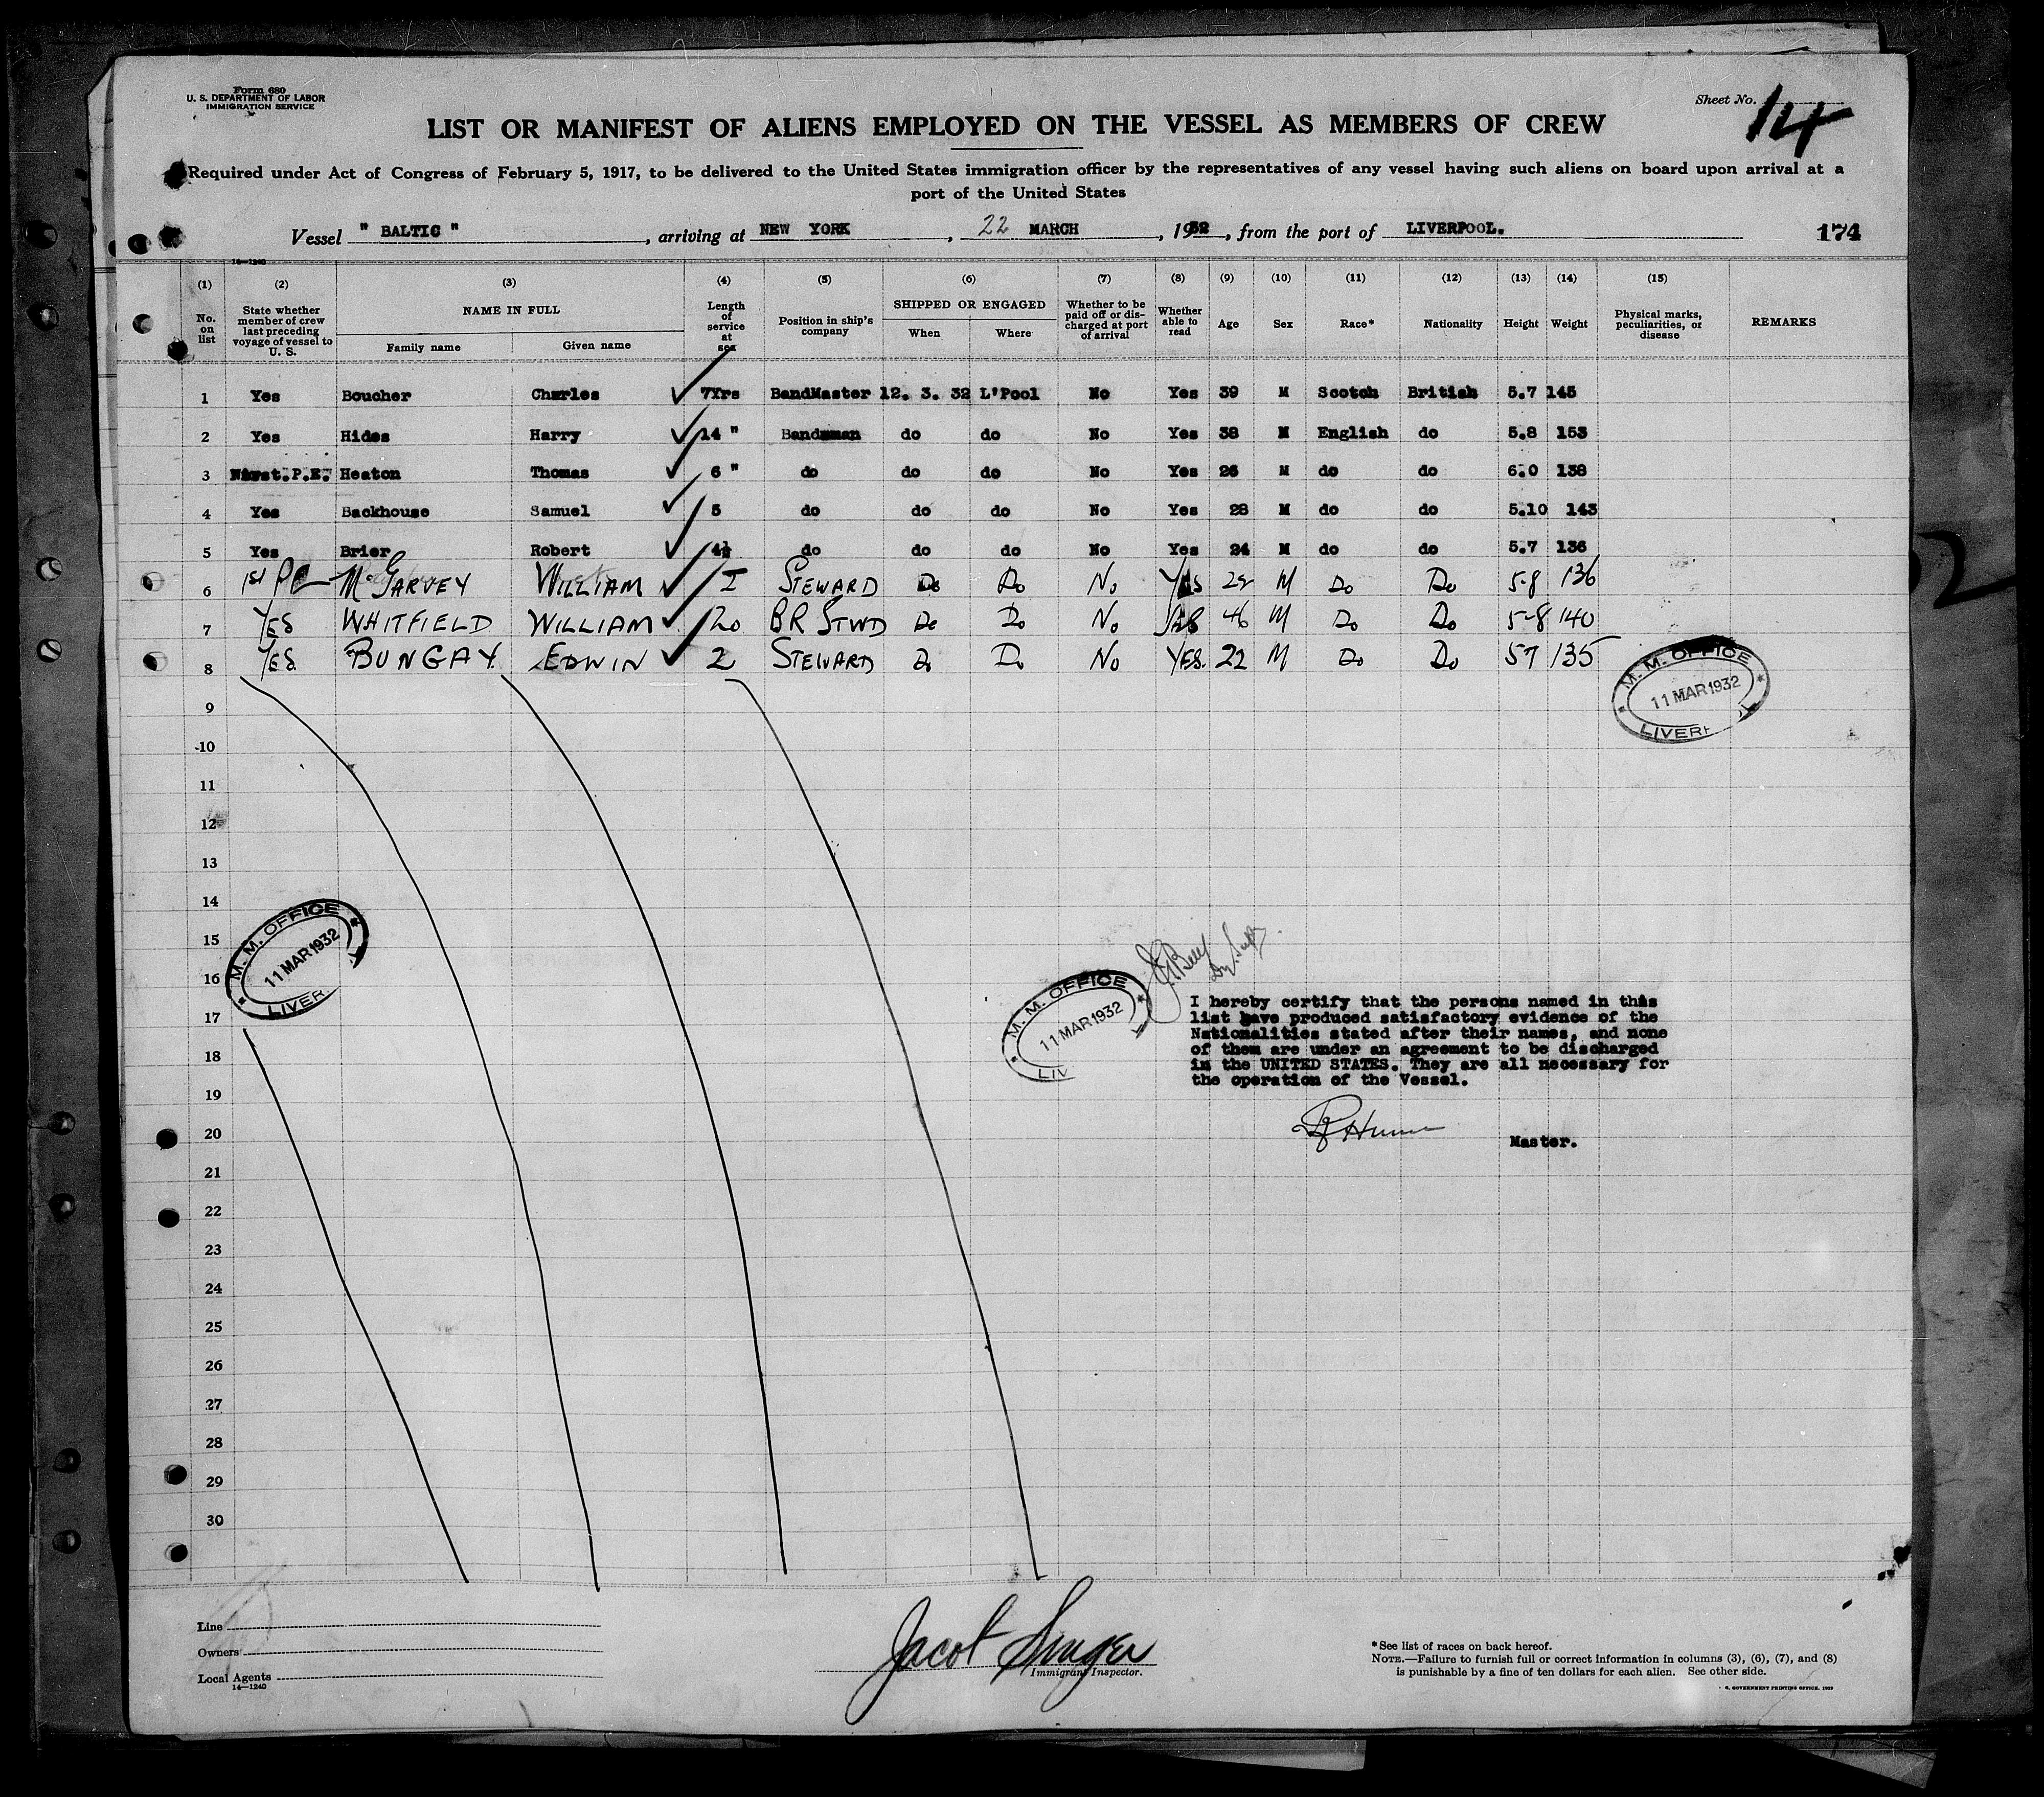 Form 680
U. S. DEPARTMENT OF LABOR
IMMIGRATION SERVICE
Sheet No. 14
LIST OR MANIFEST OF ALIENS EMPLOYED ON THE VESSEL AS MEMBERS OF CREW
Required under Act of Congress of February 5, 1917, to be delivered to the United States immigration officer by the representatives of any vessel having such aliens on board upon arrival at a
port of the United States
Vessel " BALTIC ", arriving at NEW YORK, 22 MARCH, 1932, from the port of LIVERPOOL. 174
14—1240
(1) (2) (3) (4) (5) (6) (7) (8) (9) (10) (11) (12) (13) (14) (15)
No. on list State whether member of crew last preceding voyage of vessel to U. S. NAME IN FULL Family name Given name Length of service at sea Position in ship's company SHIPPED OR ENGAGED When Where Whether to be paid off or discharged at port of arrival Whether able to read Age Sex Race* Nationality Height Weight Physical marks, peculiarities, or disease REMARKS
1 Yes Boucher Charles 7Yrs BandMaster 12. 3. 32 L'Pool No Yes 39 M Scotch British 5.7 145
2 Yes Hides Harry 14 " Bandsman do do No Yes 38 M English do 5.8 153
3 P.E. Heaton Thomas 6 " do do do No Yes 26 M do do 6.0 138
4 Yes Backhouse Samuel 5 do do do No Yes 28 M do do 5.10 143
5 Yes Brier Robert 4½ do do do No Yes 24 M do do 5.7 136
6 1st McGARVEY WILLIAM STEWARD Do Do No YES M Do Do 5-8 136
7 YES WHITFIELD WILLIAM 20 BR STWD Do Do No YES 46 M Do Do 5-8 140
8 YES BUNGAY EDWIN 2 STEWARD Do Do No YES. 22 M Do Do 57 135
9
10
11
12
13
14
15
16
17
18
19
20
21
22
23
24
25
26
27
28
29
30
M. M. OFFICE
11 MAR 1932
LIVERP
M. M. OFFICE
11 MAR 1932
LIVER
M. M. OFFICE
11 MAR 1932
LIV
I hereby certify that the persons named in this
list have produced satisfactory evidence of the
Nationalities stated after their names, and none
of them are under an agreement to be discharged
in the UNITED STATES. They are all necessary for
the operation of the Vessel.
Master.
Line
Owners
Local Agents
14—1240
Jacob Singer
Immigrant Inspector.
*See list of races on back hereof.
NOTE.—Failure to furnish full or correct information in columns (3), (6), (7), and (8)
is punishable by a fine of ten dollars for each alien. See other side.
GOVERNMENT PRINTING OFFICE. 1929